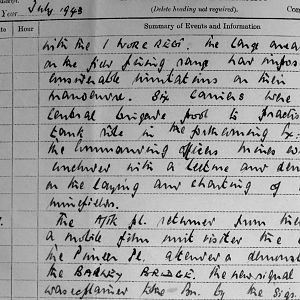 Year July 1943
(Delete heading not required).
Summary of Events and Information
Date Hour
with the 1 WORC REGT. The large area
on the field firing range had impos
considerable limitations on their
manoeuvre. Six carriers were
central brigade pool to practis
tank role in the forthcoming
the commanding officers
with a lecture and dem
on the laying and charting of
minefields.
The A/Tk pl. returned from the
a mobile film unit visited the
the Pioneer Pl. attended a demonst
the BAILEY BRIDGE. The new signal
was explained to the Bn. by the Sigs